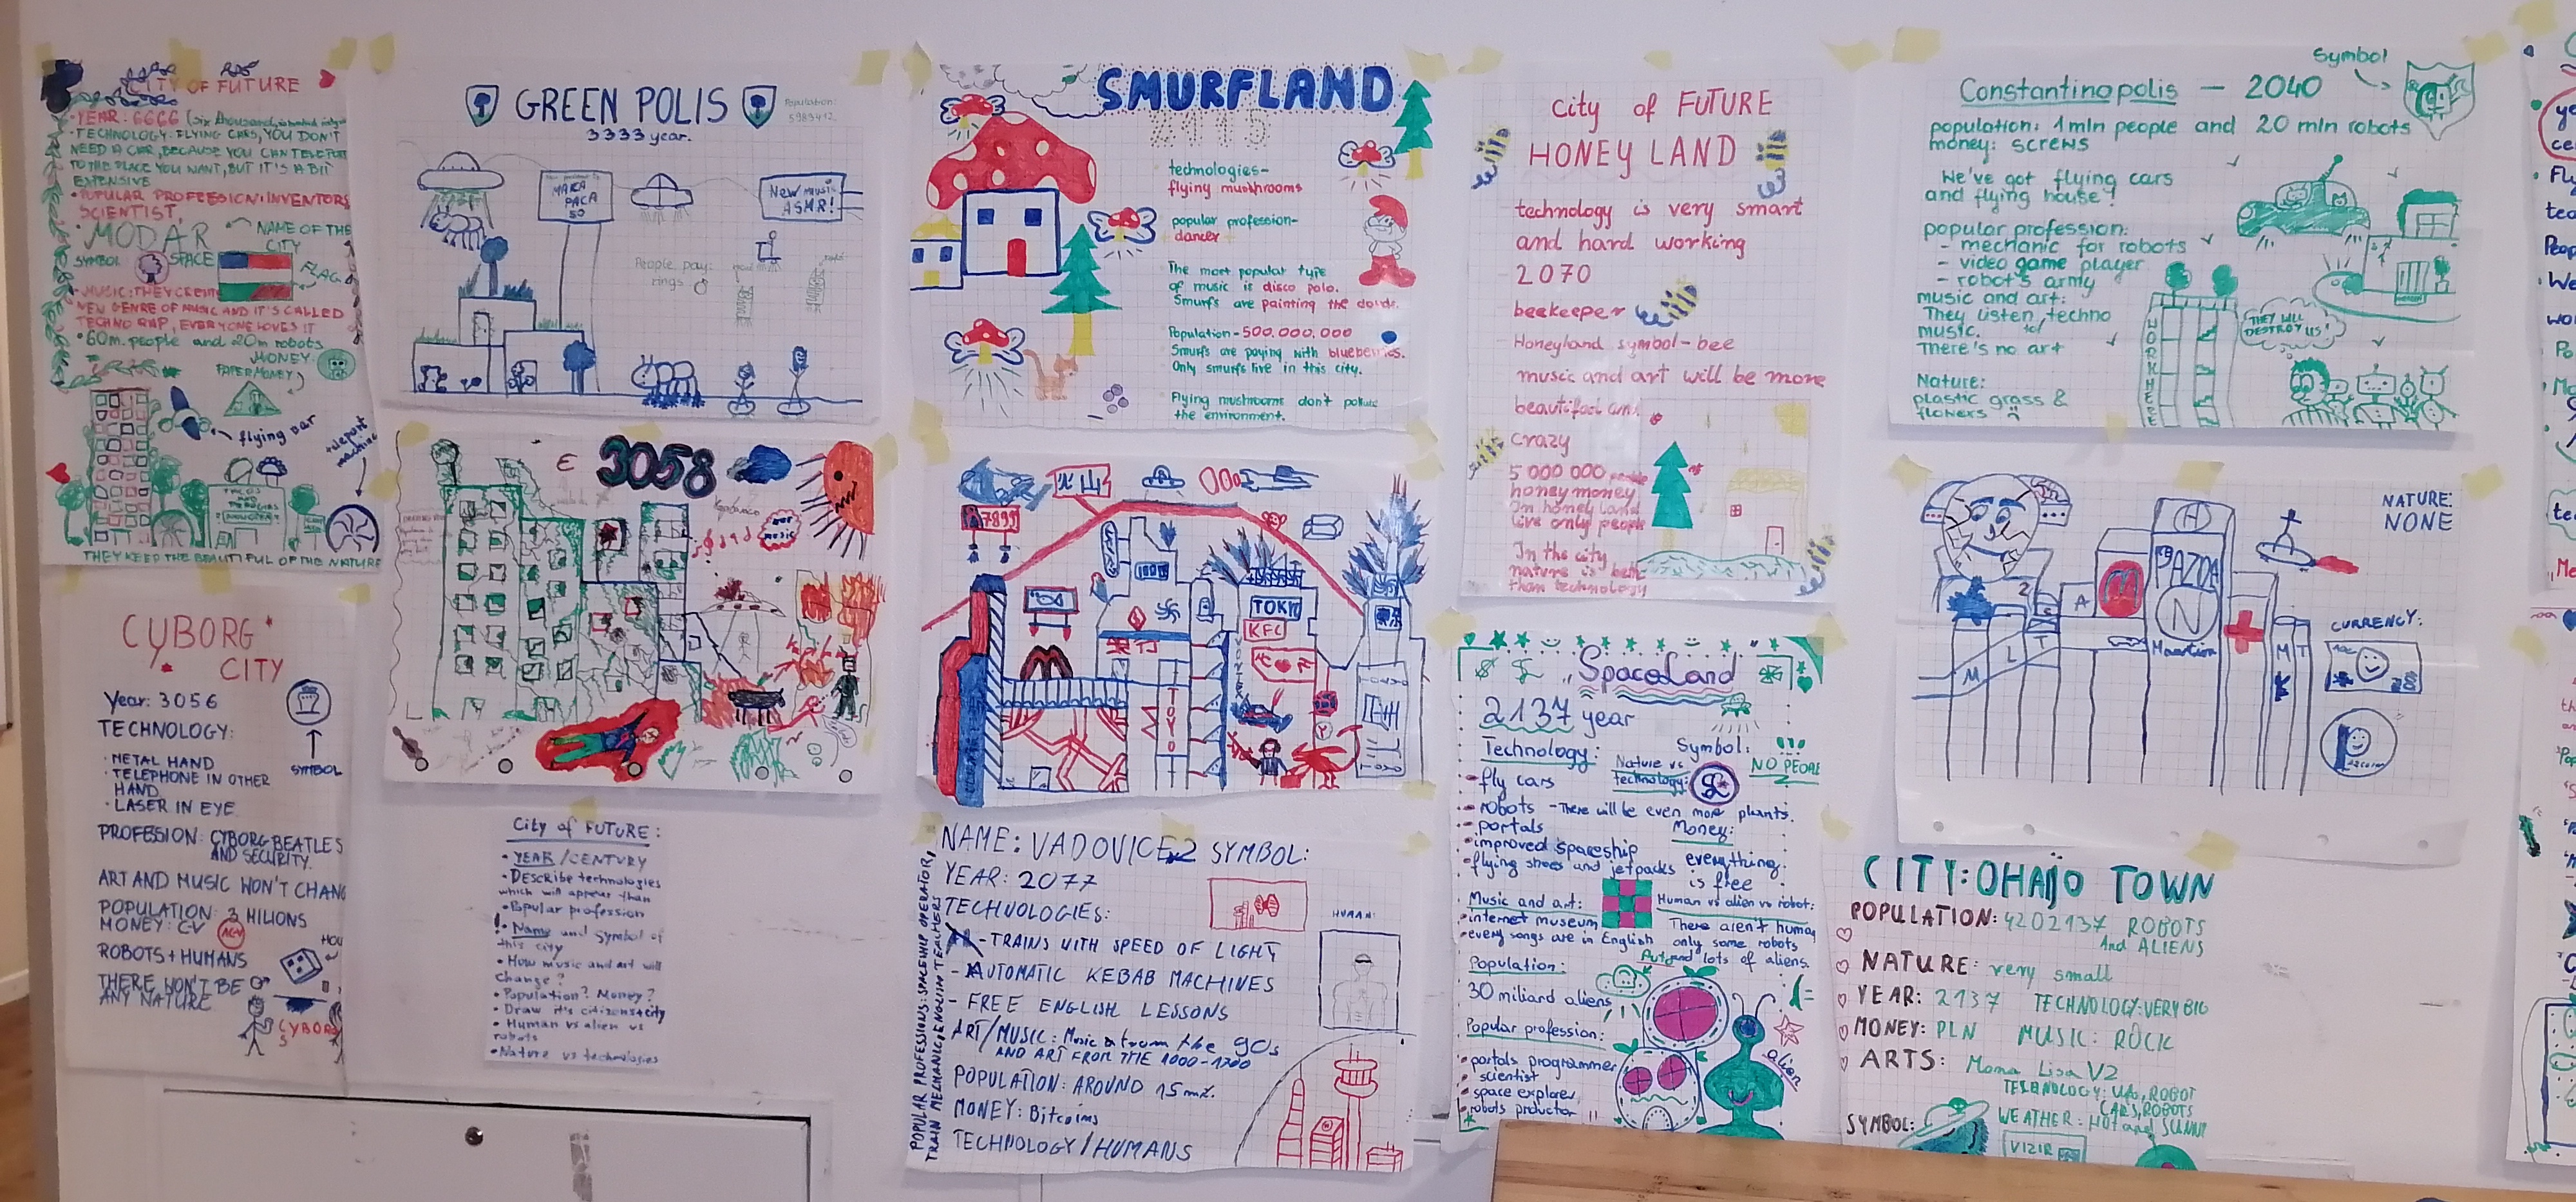 CITY OF FUTURE
• YEAR: 6666 (six thousand
• TECHNOLOGY: FLYING CARS, YOU DON'T
NEED A CAR, BECAUSE YOU CAN TELEPORT
TO THE PLACE YOU WANT, BUT IT'S A BIT
EXPENSIVE
• POPULAR PROFESSION: INVENTORS
SCIENTIST,
MODAR
SPACE
NAME OF THE
CITY
SYMBOL
FLAG
• MUSIC: THEY CREATE
NEW GENRE OF MUSIC AND IT'S CALLED
TECHNO RAP, EVERYONE LOVES IT
• 60m. people and 20m robots
MONEY:
PAPER MONEY
flying car
teleport
machine
TACOS
AND
THEY KEEP THE BEAUTIFUL OF THE NATURE
CYBORG
CITY
Year: 3056
TECHNOLOGY:
SYMBOL
• METAL HAND
• TELEPHONE IN OTHER
HAND
• LASER IN EYE
PROFESSION: CYBORG BEATLES
AND SECURITY.
ART AND MUSIC WON'T CHANG
POPULATION: 3 MILIONS
MONEY: CV
ROBOTS + HUMANS
THERE WON'T BE
ANY NATURE
CYBORG
S
GREEN POLIS
3333 year.
Population:
5983412.
MAKA
PACA
50
New music
ASMR!
People pay:
rings
3058
our
music
City of FUTURE:
• YEAR/CENTURY
• Describe technologies
which will appear than
• Popular profession
!• Name and symbol of
this city
• How music and art will
change?
• Population? Money?
• Draw it's citizens+city
• Human vs alien vs
robots
• Nature vs technologies
SMURFLAND
2115
technologies-
flying mushrooms
popular profession-
dancer
The most popular type
of music is disco polo.
Smurfs are painting the clouds.
Population - 500.000.000
Smurfs are paying with blueberries.
Only smurfs live in this city.
Flying mushrooms don't pollute
the environment.
7899
TOKIO
KFC
TOYOT
NAME: VADOVICE 2 SYMBOL:
YEAR: 2077
TECHNOLOGIES:
- TRAINS WITH SPEED OF LIGHT
- AUTOMATIC KEBAB MACHINES
- FREE ENGLISH LESSONS
ART/MUSIC: Music from the 90s
AND ART FROM THE 1000-1700
POPULATION: AROUND 15 mln.
MONEY: Bitcoins
TECHNOLOGY/HUMANS
HUMAN:
POPULAR PROFESSIONS: SPACESHIP OPERATOR,
TRAIN MECHANIC, ENGLISH TEACHERS
City of FUTURE
HONEY LAND
technology is very smart
and hard working
2070
beekeeper
Honeyland symbol-bee
music and art will be more
beautiful and
crazy
5 000 000 people
honey money
On honey land
live only people
In the city
nature is better
than technology
SpaceLand
2137 year
Technology:
• fly cars
• robots
• portals
• improved spaceship
• flying shoes and jetpacks
Symbol:
NO PEOPLE
Nature vs
technology:
- There will be even more plants.
Money:
everything
is free
Music and art:
• internet museum
• every songs are in English
Human vs alien vs robot:
There aren't human
only some robots
and lots of aliens.
Population:
30 miliard aliens
Popular profession:
• portals programmer
• scientist
• space explorer
• robots productor
alien
Symbol
Constantinopolis - 2040
population: 1 mln people and 20 mln robots
money: screws
We've got flying cars
and flying house!
popular profession:
- mechanic for robots
- video game player
- robot's army
music and art:
They listen techno
music.
There's no art
Nature:
plastic grass &
flowers
WORK HERE
THEY WILL
DESTROY US!
NATURE:
NONE
CURRENCY:
M
L
T
A
M
H
N
M T
CITY: OHAJO TOWN
POPULATION: 4202137 ROBOTS
And ALIENS
NATURE: very small
YEAR: 2137 TECHNOLOGY: VERY BIG
MONEY: PLN MUSIC: ROCK
ARTS: Mona Lisa V2
TECHNOLOGY: Ufo, ROBOT
CARS, ROBOTS
WEATHER: HOT and SUNNY
SYMBOL:
VIZIR